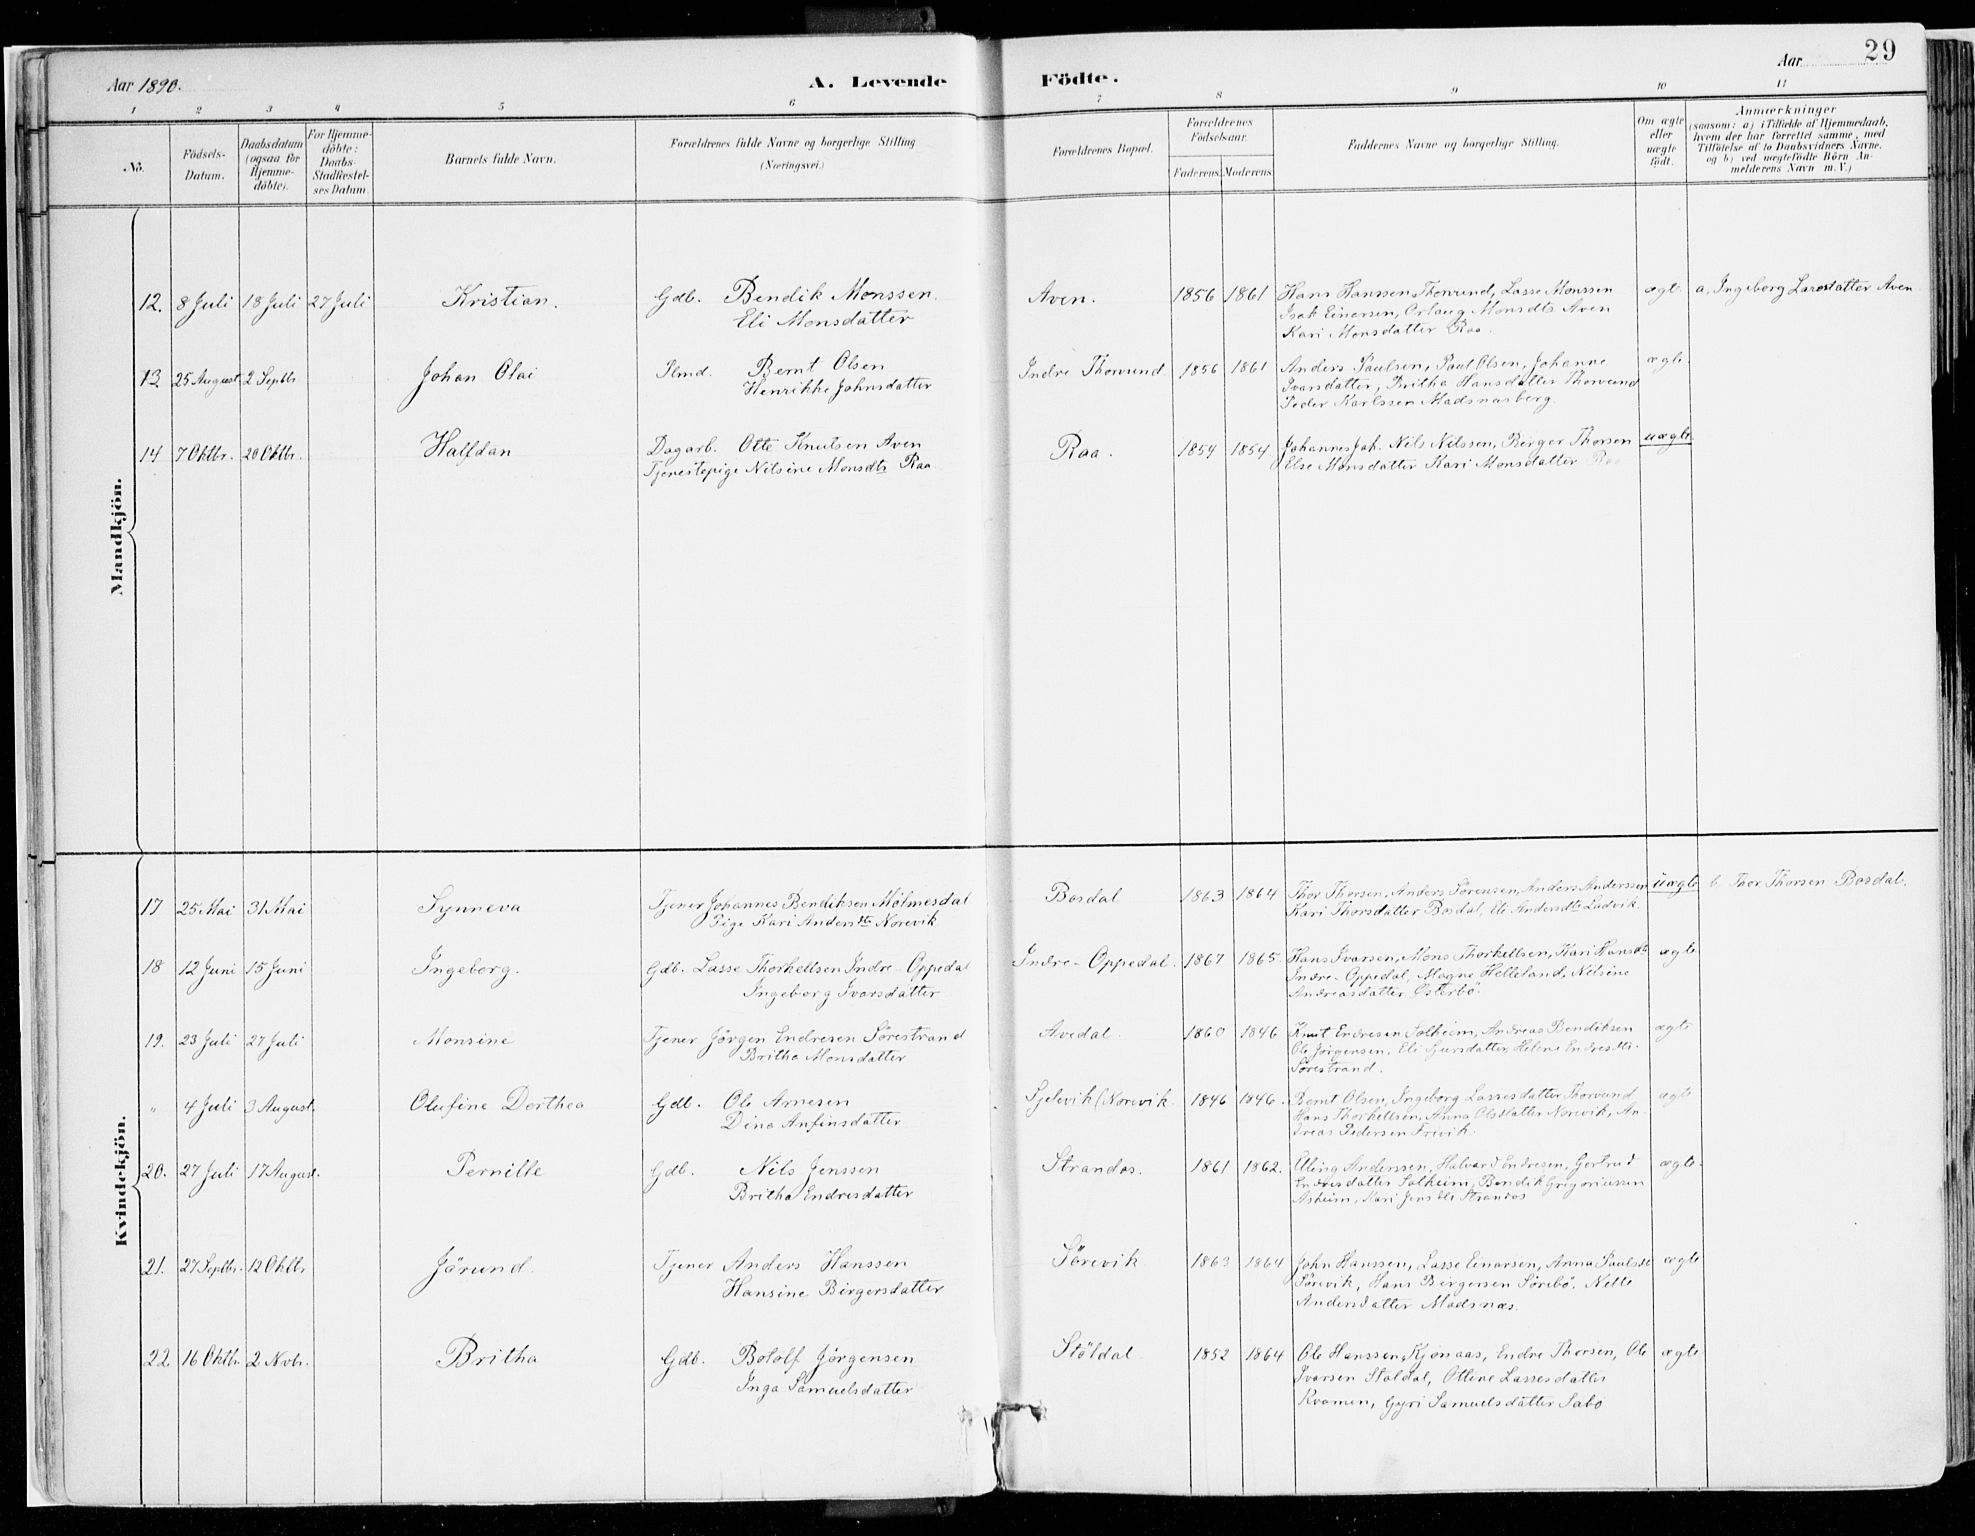 Aar 1890.
A. Levende Födte.
Aar
29
1 2 3 4 5 6 7 8 9 10 11
No.
Födsels-
Datum.
Daabsdatum
(ogsaa for
Hjemme-
döbte).
For Hjemme-
döbte:
Daabs-
Stadfæstel-
ses Datum.
Barnets fulde Navn.
Forældrenes fulde Navne og borgerlige Stilling
(Næringsvei.)
Forældrenes Bopæl.
Forældrenes
Födselsaar.
Faderens. Moderens.
Faddernes Navne og borgerlige Stilling.
Om ægte
eller
uægte
födt.
Anmærkninger
(saasom: a) i Tilfælde af Hjemmedaab,
hvem der har forrettet samme, med
Tilföielse af to Daabsvidners Navne,
og b) ved uægtefödte Börn An-
melderens Navn m. V.)
Mandkjön.
12. 8 Juli 18 Juli 27 Juli Kristian. Gdb. Bendik Monssen. Aven. 1856 1861 Hans Hanssen Thorvund, Lasse Monssen ægte a, Ingeborg Larsdatter Aven
Eli Monsdatter Isak Einarsen, Orlaug Monsdtr Aven
Kari Monsdatter Raa.
13 25 August 2 Septbr Johan Olai Plmd. Bernt Olsen Indre Thorvund 1856 1861 Anders Paulsen, Paul Olsen, Johanne ægte.
Henrikke Johnsdatter Ivarsdatter, Britha Hansdatter Thorvund
Peder Karlssen Madsnasberg.
14 7 Oktbr. 20 Oktbr. Halfdan Dagarb. Otte Knutsen Aven Raa. 1854 1854 Johannes Joh. Nils Nilssen, Birger Thorsen uægte.
Tjenestepige Nilsine Monsdtr Raa Else Monsdatter Kari Monsdatter Raa
Kvindekjön.
17 25 Mai 31 Mai Synneva Tjener Johannes Bendiksen Mölmesdal Bosdal 1863 1864 Thor Thorsen, Anders Sörensen, Anders Anderssen uægte b. Thor Thorsen Bosdal.
Pige Kari Andersdtr Norevik Kari Thorsdatter Bosdal, Eli Andersdtr Ladvik.
18 12 Juni 15 Juni Ingeborg. Gdb. Lasse Thorkellsen Indre-Oppedal Indre-Oppedal. 1867 1865. Hans Ivarsen, Mons Thorkellsen, Kari Hansdtr ægte
Ingeborg Ivarsdatter Indre-Oppedal, Magne Helleland, Nilsine
Andreasdatter Osterbö.
19. 23 Juli 27 Juli Monsine Tjener Jörgen Endresen Sörestrand Avedal. 1860 1846 Knut Endresen Solheim, Andreas Bendiksen ægte
Britha Monsdatter Ole Jörgensen, Eli Sjursdatter, Helene Endresdtr.
Sörestrand.
" 4 Juli 3 August. Olufine Dorthea Gdb. Ole Arnesen Sjelevik (Norevik 1846 1846. Bernt Olsen, Ingeborg Lassesdatter Thorvund ægte
Dina Anfinsdatter Hans Thorkellsen, Anna Olsdatter Norevik, An-
dreas Pedersen Frivik.
20. 27 Juli 17 August. Pernille Gdb. Nils Jenssen Strandos. 1861 1862. Elling Anderssen, Halvard Endresen, Gortrud ægte.
Britha Endresdatter Endresdatter Solheim, Bendik Gregoriussen
Asheim, Kari Jensdtr Strandos
21. 27 Septbr. 12 Oktbr Jörund. Tjener Anders Hanssen Sörevik 1863 1864 John Hanssen, Lasse Einarsen, Anna Paulsdtr ægte
Hansine Birgersdatter Sörevik, Hans Birgersen Sörebö. Nelle
Andersdatter Madsnæs.
22 16 Oktbr. 2 Novbr. Britha Gdb. Botolf Jörgensen Stöldal 1852 1864 Ole Hanssen Kjönaas, Endre Thorsen, Ole ægte
Inga Samuelsdatter Ivarsen Stöldal, Olline Lassesdatter
Kvamen, Gyri Samuelsdatter Sabö